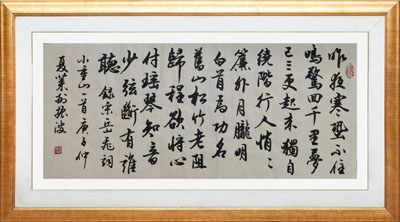 昨夜寒蛩不住
鳴驚回千里夢
已三更起來獨自
繞階行人悄〻
簾外月朧明
白首為功名
舊山松竹老阻
歸程欲將心
付瑤琴知音
少弦斷有誰
聽 錄宋岳飛詞
小重山一首庚子仲
夏振波